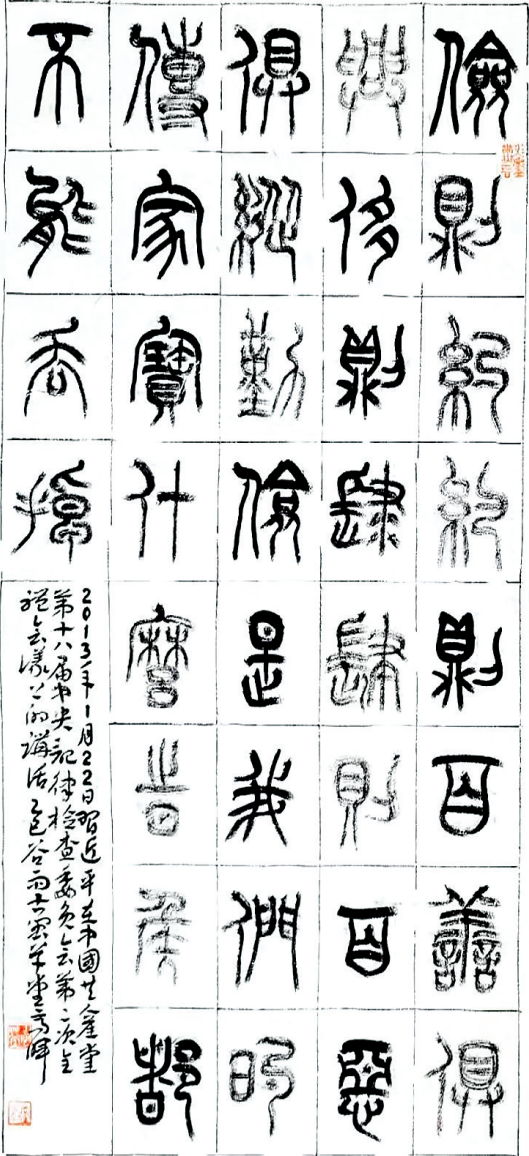 儉則約約則百善俱
興侈則肆肆則百惡
俱縱勤儉是我們的
傳家寶什麼時候都
不能丟掉
2013年1月22日習近平在中國共產黨
第十八屆中央紀律檢查委員會第二次全
體會議上的講話 谷雨 草堂